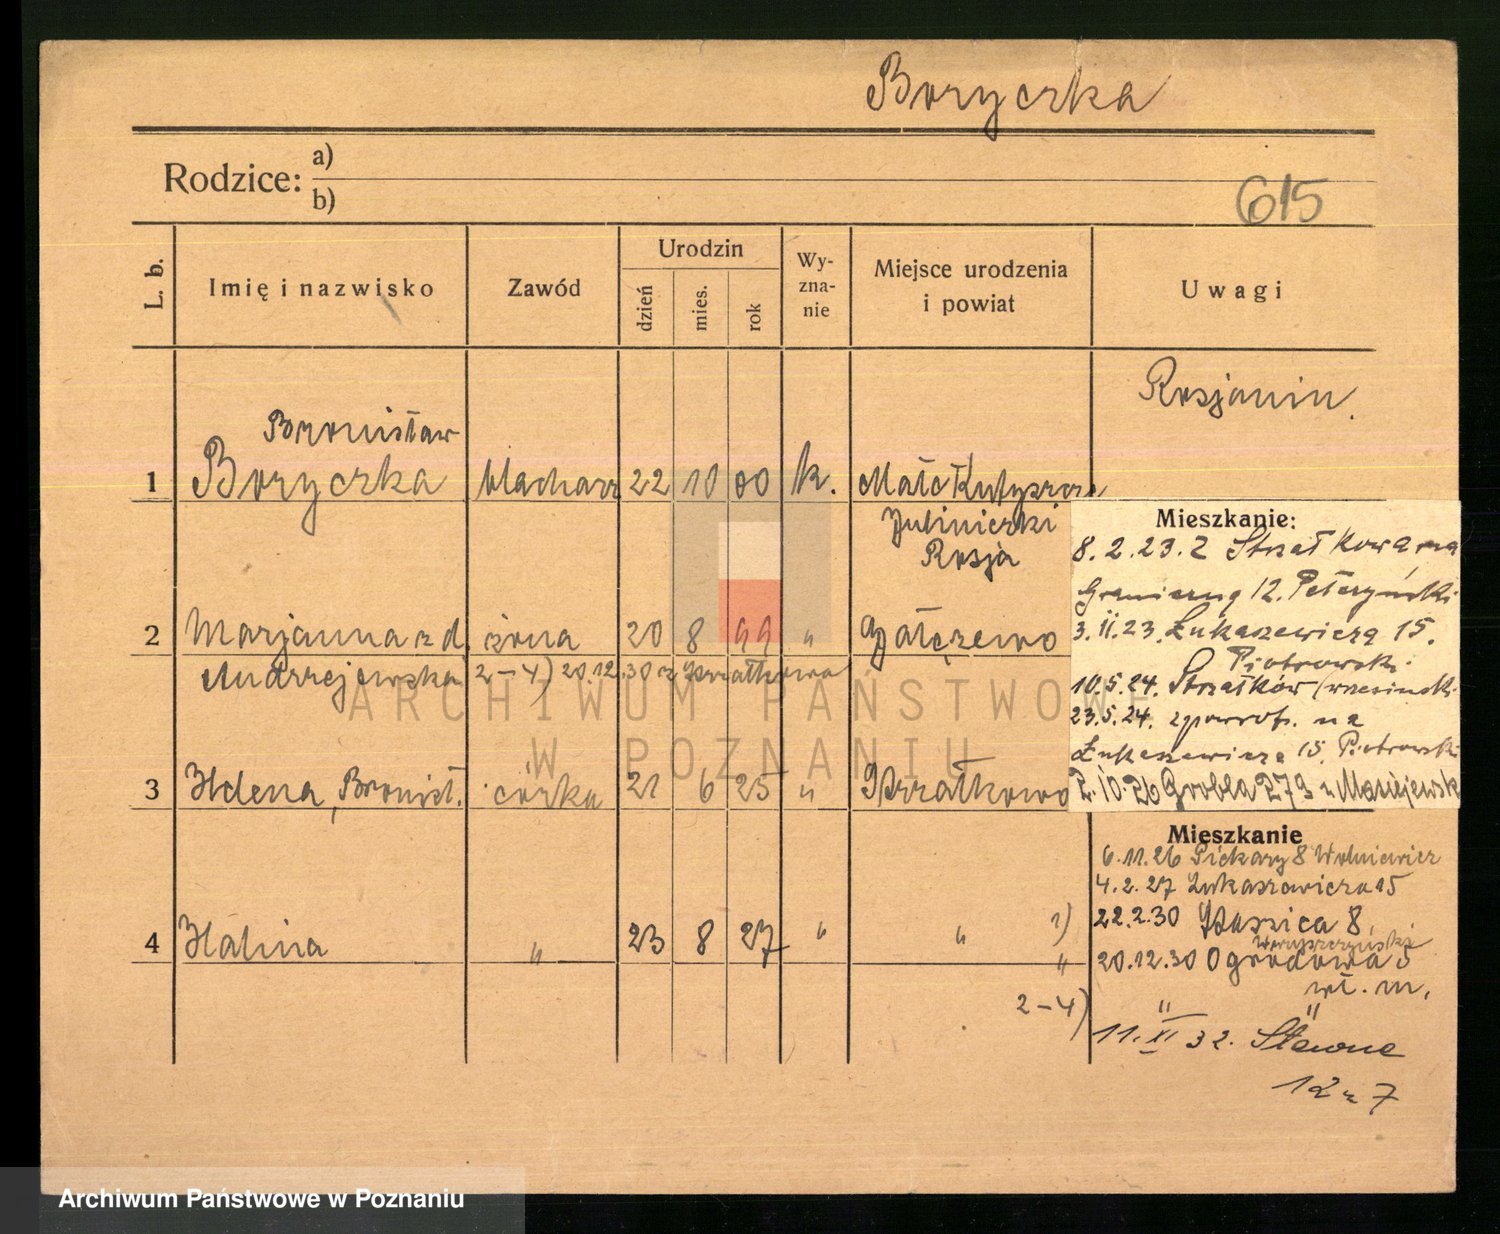 Boryczka
Rodzice: a)
b)
615
L. b.
Imię i nazwisko
Zawód
Urodzin
dzień
mies.
rok
Wy-
zna-
nie
Miejsce urodzenia
i powiat
Uwagi
Rosjanin.
Bronisław
1 Boryczka blacharz 22 10 00 k. Małe
Rosja
2 Marjanna z d. żona 20 8 99 "
Andrzejewska 2-4) 20.12.30 z
3 Helena, Bronisł. córka 21 6 25 "
4 Halina " 23 8 27 " " 2)
"
2-4)
Mieszkanie:
8.2.23. z Strzałkowa na
Graniczną 12.
3.II.23. Łukaszewicza 15.
Piotrowski.
10.5.24. Strzałków (wrzesiński
23.5.24. zpowrot. na
Łukaszewicza 15. Piotrowski
2.10.26 Grobla 27a u Maciejewsk
Mieszkanie
6.11.26 Piekary 8 Wolniewicz
4.2.27 Łukaszewicza 15
22.2.30 Staszica 8,
20.12.30 Ogrodowa 5
wł. m.
" "
11.XI 32. Sławna
12 z 7
ARCHIWUM PAŃSTWOWE
W POZNANIU
Archiwum Państwowe w Poznaniu